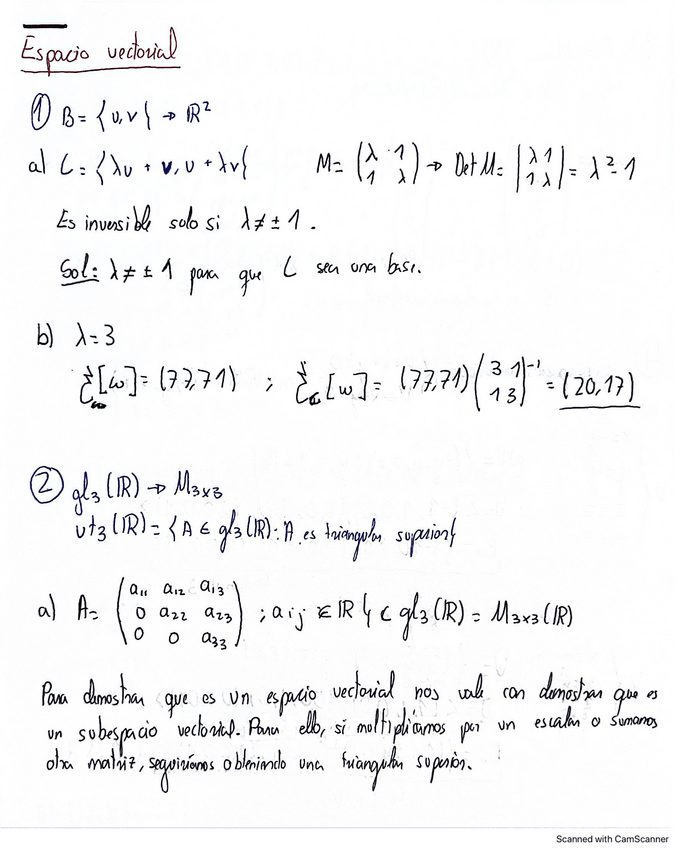 Espacio vectorial
① B = {u, v} → ℝ²
a) C = {λu + v, u + λv} M = (λ 1 / 1 λ) → Det M = |λ 1 / 1 λ| = λ² - 1
Es inversible solo si λ ≠ ± 1.
Sol: λ ≠ ± 1 para que C sea una base.
b) λ = 3
[w] = (77,71) ; [w] = (77,71) (3 1 / 1 3)⁻¹ = (20,17)
② gl₃(ℝ) → M₃ₓ₃
ut₃(ℝ) = {A ∈ gl₃(ℝ): A es triangular superior}
a) A = (a₁₁ a₁₂ a₁₃ / 0 a₂₂ a₂₃ / 0 0 a₃₃) ; aᵢⱼ ∈ ℝ} ⊂ gl₃(ℝ) = M₃ₓ₃(ℝ)
Para demostrar que es un espacio vectorial nos vale con demostrar que es
un subespacio vectorial. Para ello, si multiplicamos por un escalar o sumamos
otra matriz, seguiríamos obteniendo una triangular superior.
Scanned with CamScanner